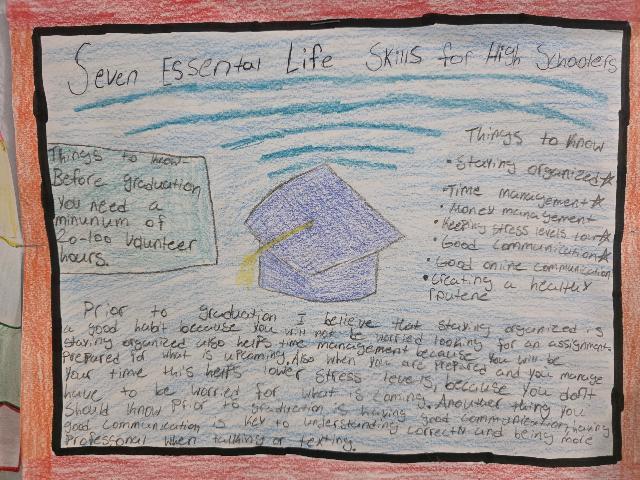 Seven Essental Life Skills for High Schoolers
Things to know-
Before graduation
You need a
minunum of
20-100 Volunteer
hours.
Things to know
• Staying organized☆
• Time management☆
• Money management
• Keeping stress levels low☆
• Good communication☆
• Good online communication
• Creating a healthy
routene
Prior to graduation I believe that staying organized is
a good habit because you will not be worried looking for an assignment.
staying organized also helps time management because you will be
Prepared for what is upcoming. Also when you are prepared and you manage
your time this helps lower stress levels, because you don't
have to be worried for what is coming. Another thing you
should know Prior to graduation is having good communication, having
good communication is key to understanding correctly and being more
Professional when talking or texting.